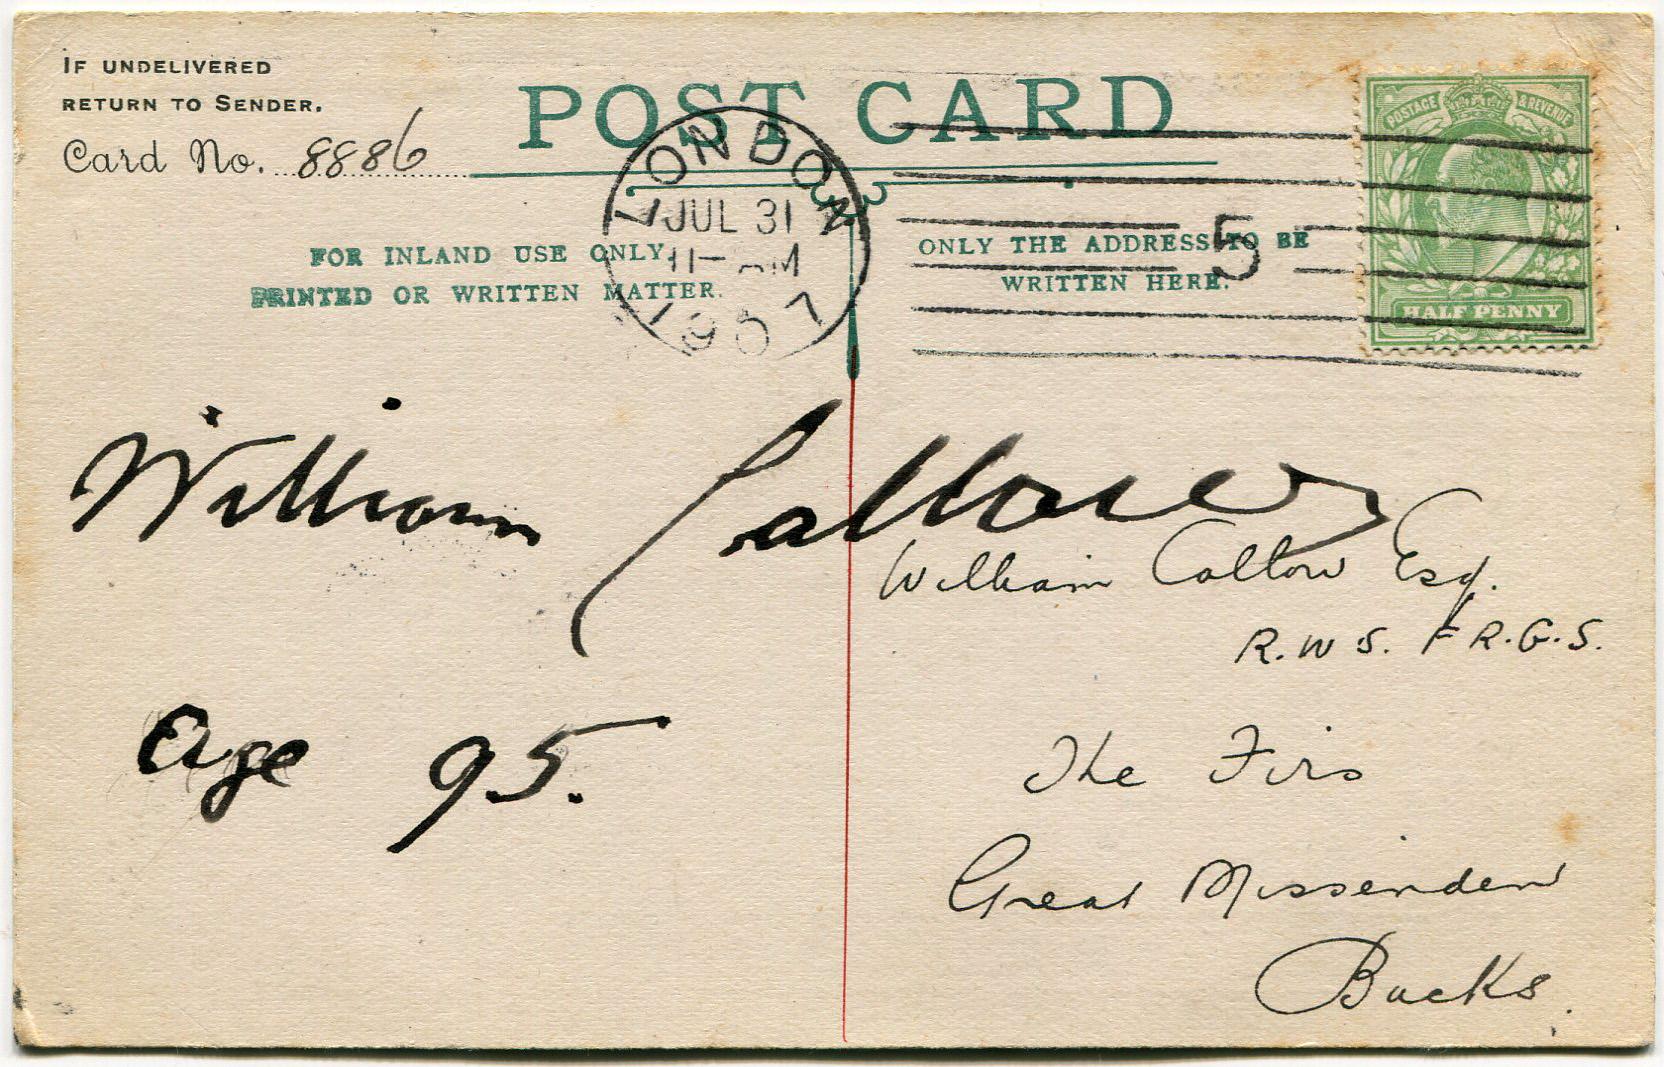 IF UNDELIVERED
RETURN TO SENDER.
Card No. 8886
POST CARD
LONDON
JUL 31
11- AM
1907
5
POSTAGE & REVENUE
HALF PENNY
FOR INLAND USE ONLY
PRINTED OR WRITTEN MATTER.
ONLY THE ADDRESS TO BE
WRITTEN HERE.
William Callow
Age 95.
William Callow Esq.
R.W.S. F.R.G.S.
The Firs
Great Missenden
Bucks.